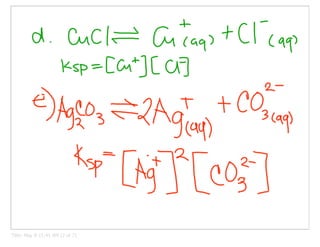 d. CuCl ⇌ Cu⁺(aq) + Cl⁻(aq)
Ksp = [Cu⁺][Cl⁻]
e) Ag₂CO₃ ⇌ 2Ag⁺(aq) + CO₃²⁻(aq)
Ksp = [Ag⁺]²[CO₃²⁻]